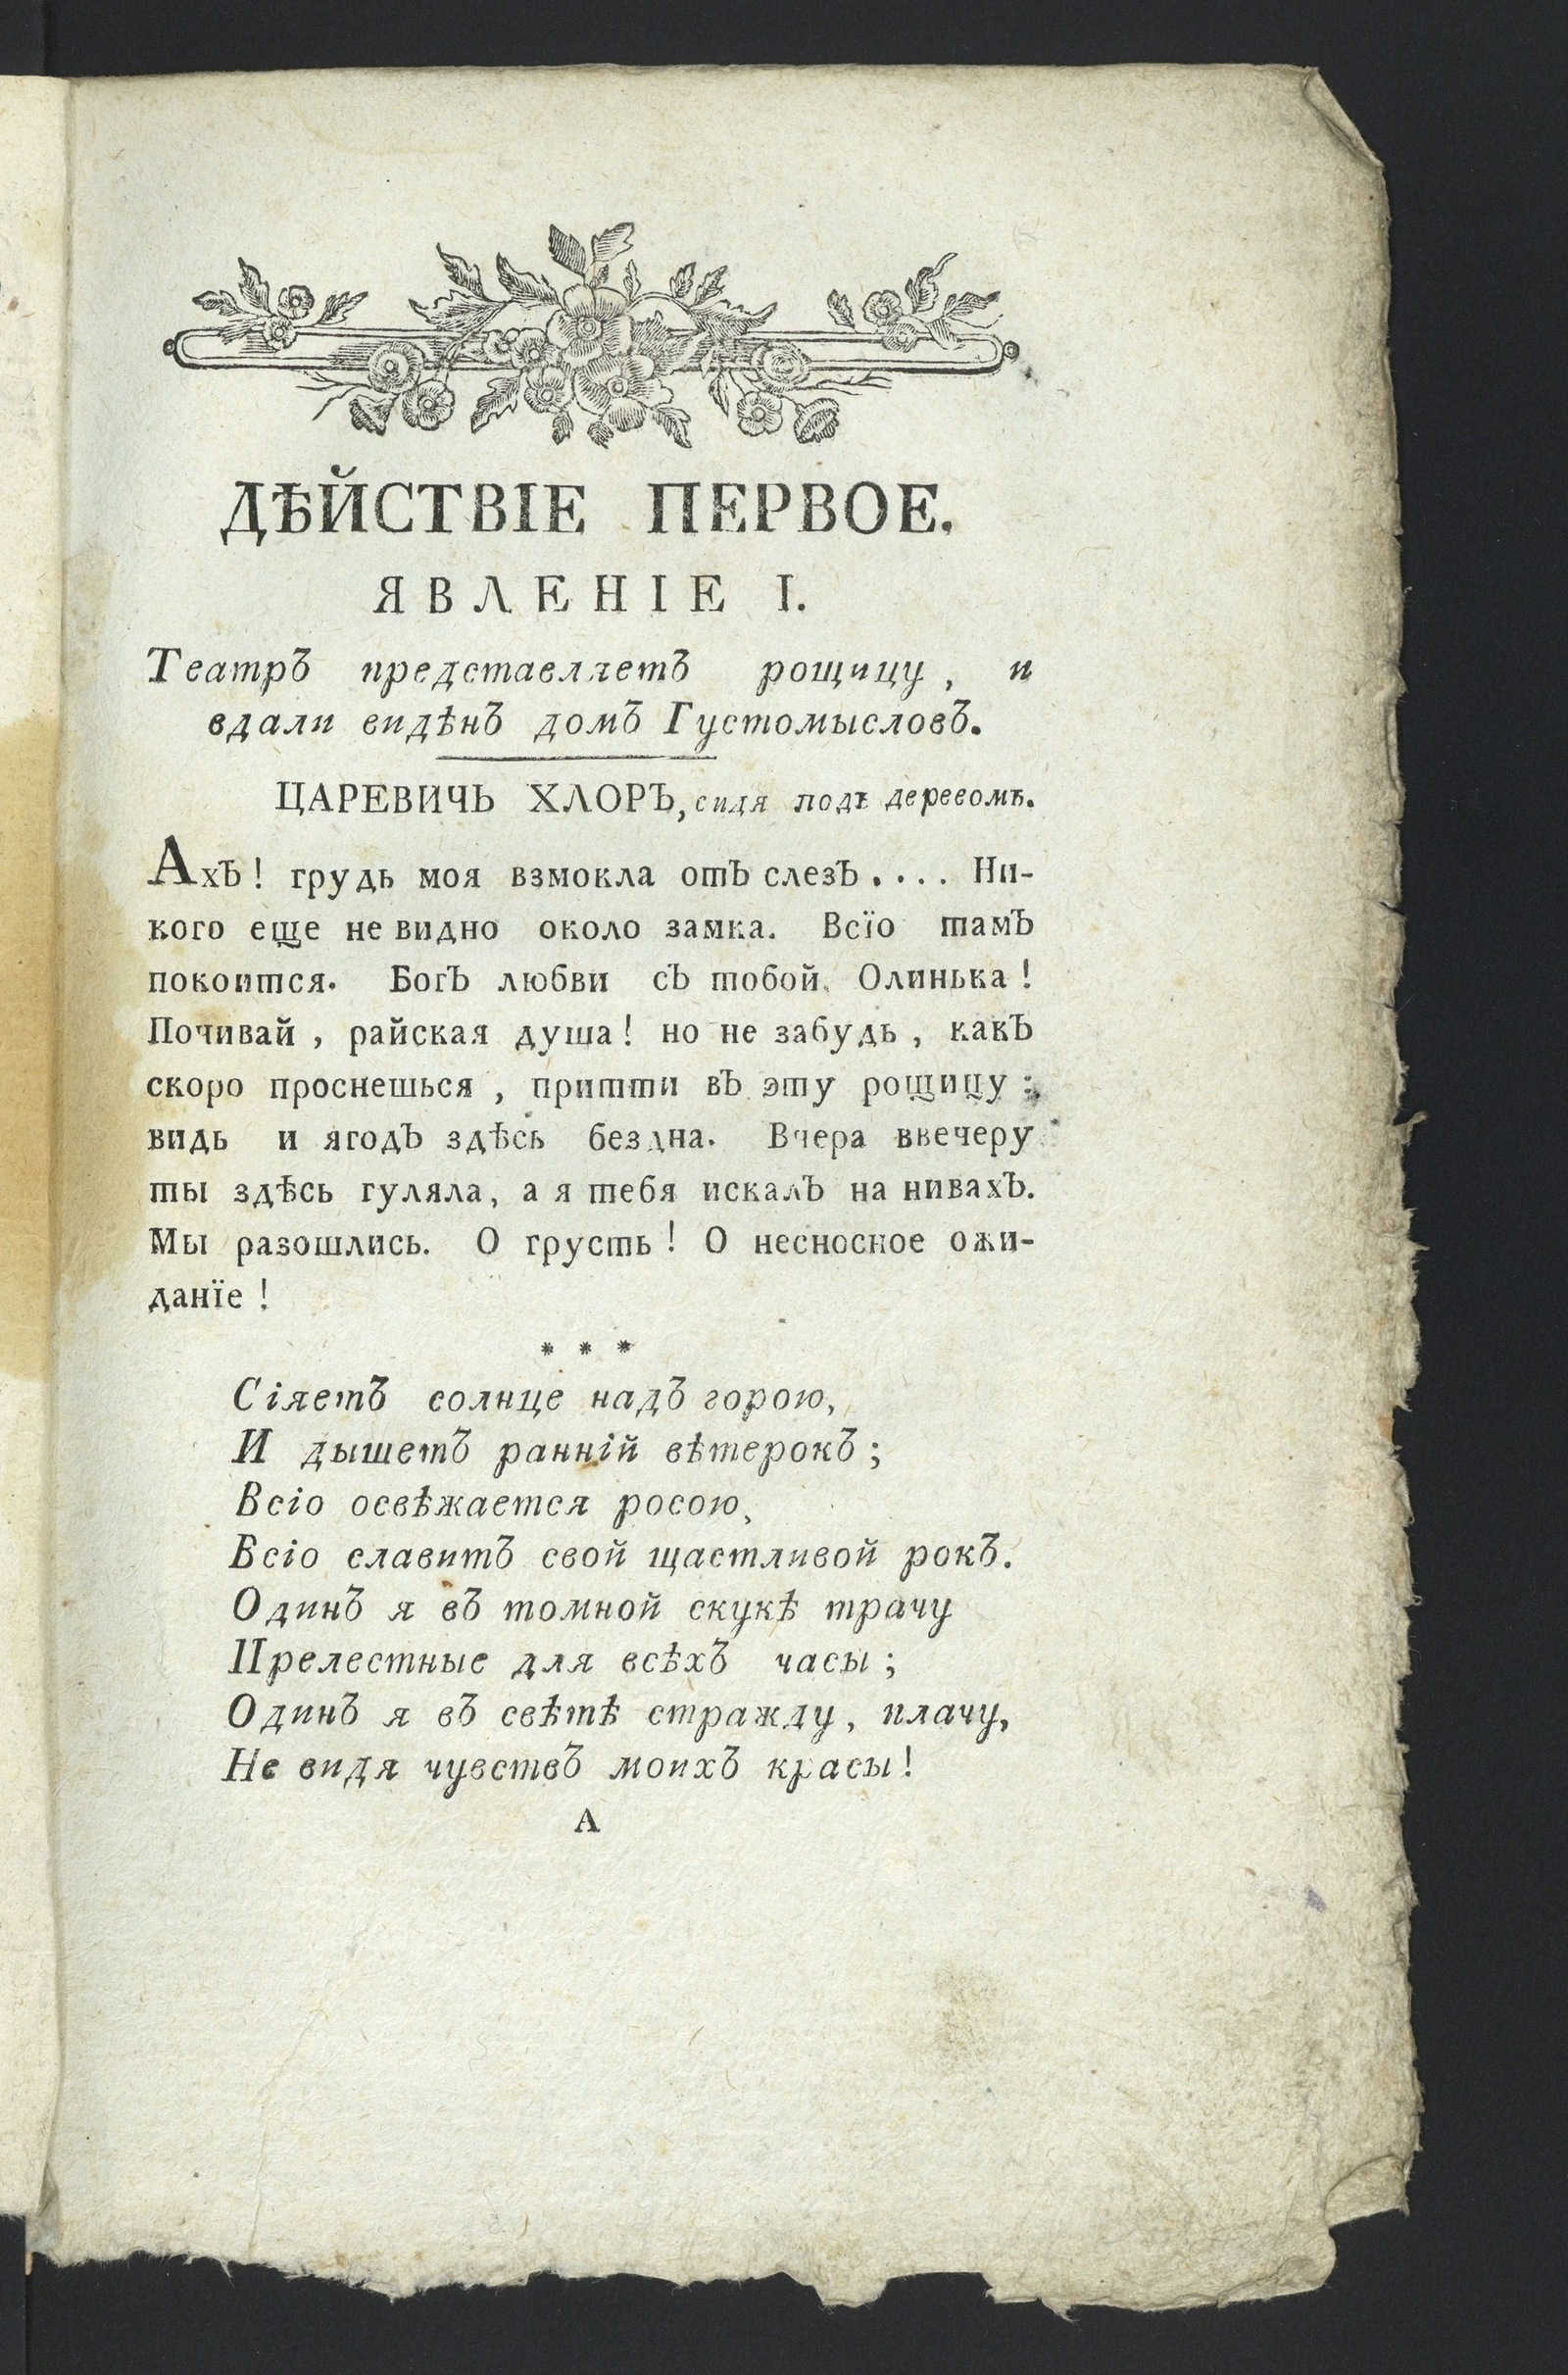 ДѢЙСТВІЕ ПЕРВОЕ.
ЯВЛЕНІЕ I.
Театръ представляетъ рощицу, и
вдали видѣнъ домъ Густомысловъ.
ЦАРЕВИЧЬ ХЛОРЪ, сидя подъ деревомъ.
Ахъ! грудь моя взмокла отъ слезъ.... Ни-
кого еще не видно около замка. Всїо тамъ
покоится. Богъ любви съ тобой, Олинька!
Почивай, райская душа! но не забудь, какъ
скоро проснешься, притти въ эту рощицу:
видь и ягодъ здѣсь бездна. Вчера ввечеру
ты здѣсь гуляла, а я тебя искалъ на нивахъ.
Мы разошлись. О грусть! О несносное ожи-
данїе!
* * *
Сіяетъ солнце надъ горою,
И дышетъ ранній вѣтерокъ;
Всіо освѣжается росою,
Всіо славитъ свой щастливой рокъ.
Одинъ я въ томной скукѣ трачу
Прелестные для всѣхъ часы;
Одинъ я въ свѣтѣ стражду, плачу,
Не видя чувствъ моихъ красы!
А